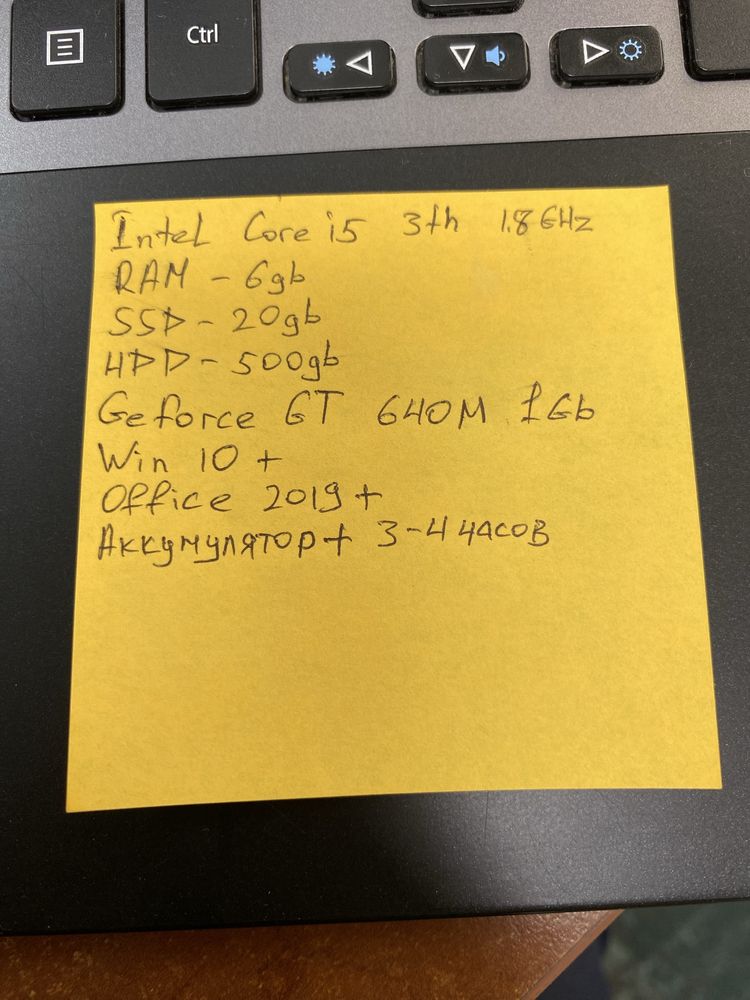 Ctrl
Intel Core i5 3th 1.8GHz
RAM - 6gb
SSD - 20gb
HDD - 500gb
Geforce GT 640M 1Gb
Win 10 +
Office 2019 +
Аккумулятор + 3-4 часов